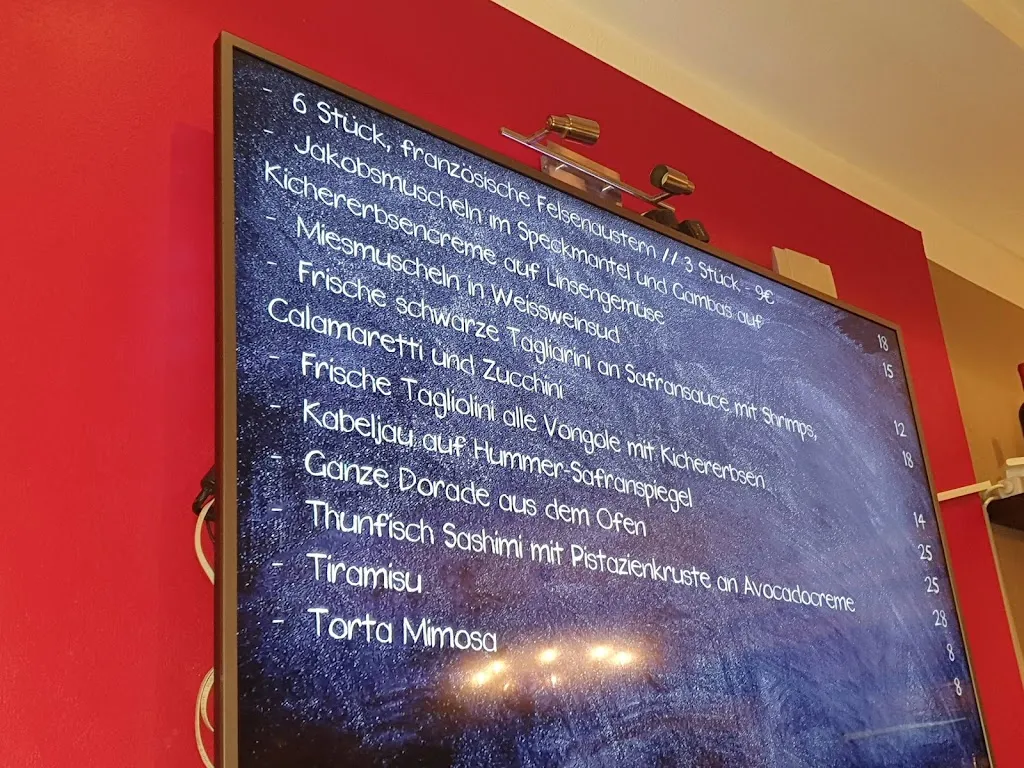 - 6 Stück, französische Felsenaustern // 3 Stück - 9€ 18
- Jakobsmuscheln im Speckmantel und Gambas auf 15
Kichererbsencreme auf Linsengemüse
- Miesmuscheln in Weissweinsud 12
- Frische schwarze Tagliarini an Safransauce mit Shrimps, 18
Calamaretti und Zucchini
- Frische Tagliolini alle Vongole mit Kichererbsen 14
- Kabeljau auf Hummer-Safranspiegel 25
- Ganze Dorade aus dem Ofen 25
- Thunfisch Sashimi mit Pistazienkruste an Avocadocreme 28
- Tiramisu 8
- Torta Mimosa 8